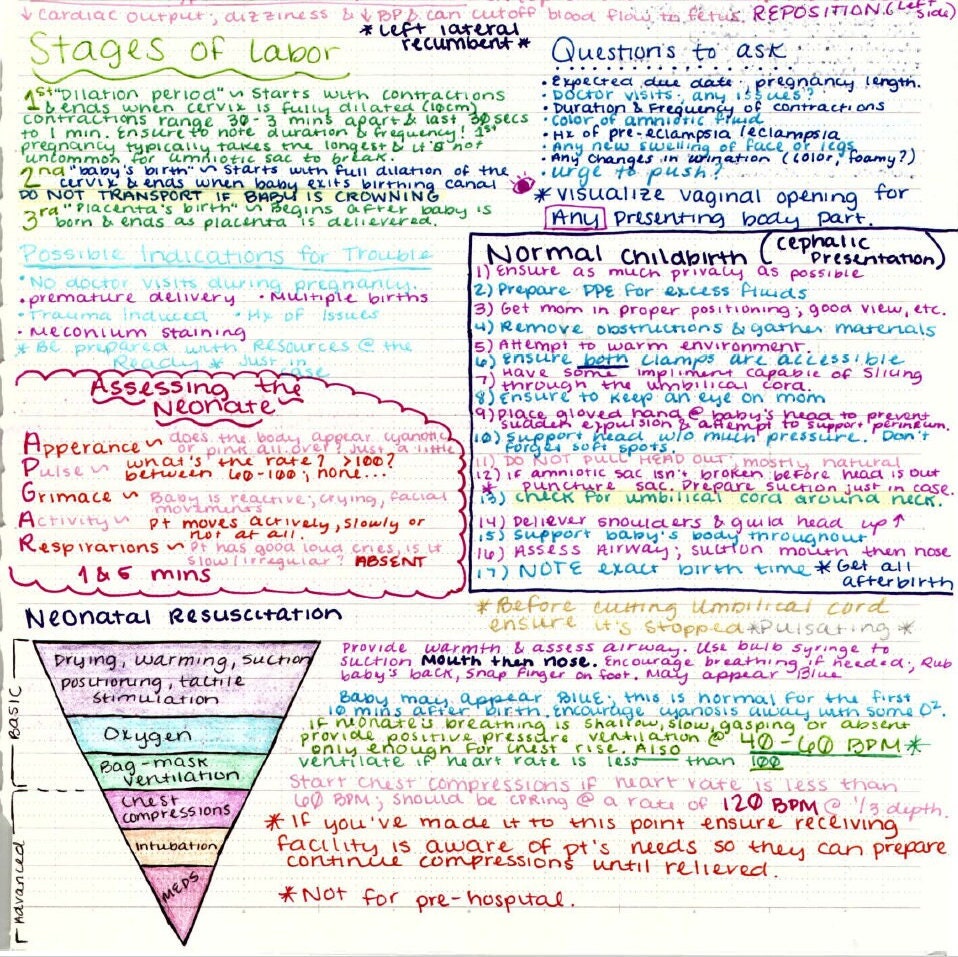 ↓ Cardiac output, dizziness & ↓ BP & can cutoff blood flow to fetus. REPOSITION (Left side)
*Left lateral recumbent*
Stages of Labor
1st "Dilation period" ~ Starts with contractions
& ends when cervix is fully dilated (10cm)
contractions range 30 - 3 mins apart & last 30 secs
to 1 min. Ensure to note duration & frequency! 1st
pregnancy typically takes the longest & it's not
uncommon for amniotic sac to break.
2nd "baby's birth" ~ Starts with full dilation of the
cervix & ends when baby exits birthing canal
DO NOT TRANSPORT IF BABY IS CROWNING
3rd "Placenta's birth" ~ Begins after baby is
born & ends as placenta is delievered.
Questions to ask
• Expected due date; pregnancy length.
• Doctor visits; any issues?
• Duration & Frequency of contractions
• Color of amniotic fluid
• Hx of pre-eclampsia/eclampsia
• Any new swelling of face or legs
• Any changes in urination (color, foamy?)
• urge to push?
* Visualize vaginal opening for
Any presenting body part.
Possible Indications for Trouble
• No doctor visits during pregnancy.
• premature delivery • Multiple births
• Trauma Induced • Hx of Issues
• Meconium staining
* Be prepared with Resources @ the
Ready * Just in
case
Assessing the
Neonate
Apperance ~ does the body appear cyanotic
or pink all over? Just a little
Pulse ~ what's the rate? >100?
between 60-100; none...
Grimace ~ Baby is reactive; crying, facial
movements
Activity ~ Pt moves actively, slowly or
not at all.
Respirations ~ Pt has good loud cries, is it
slow/irregular? ABSENT
1 & 5 mins
Normal Childbirth (Cephalic Presentation)
1) Ensure as much privacy as possible
2) Prepare PPE for excess fluids
3) Get mom in proper positioning; good view, etc.
4) Remove obstructions & gather materials
5) Attempt to warm environment.
6) Ensure both clamps are accessible
7) Have some impliment capable of slicing
through the umbilical cord.
8) Ensure to keep an eye on mom
9) Place gloved hand @ baby's head to prevent
sudden expulsion & attempt to support perineum.
10) Support head w/o much pressure. Don't
forget soft spots.
11) DO NOT PULL HEAD OUT; mostly natural
12) if amniotic sac isn't broken before head is out
* puncture sac. Prepare suction just in case.
13) Check for umbilical cord around neck.
14) Deliever shoulders & guild head up ↑
15) Support baby's body throughout
16) Assess Airway; suction mouth then nose
17) NOTE exact birth time * Get all
afterbirth
Neonatal Resuscitation
BASIC
Advanced
Drying, warming, suction
positioning, tactile
stimulation
Oxygen
Bag-mask
ventilation
Chest
compressions
Intubation
MEDS
*Before cutting Umbilical cord
ensure it's stopped *Pulsating*
Provide warmth & assess airway. Use bulb syringe to
suction Mouth then nose. Encourage breathing if needed; Rub
baby's back, snap finger on foot. May appear Blue
Baby may appear BLUE; this is normal for the first
10 mins after birth. Encourage cyanosis away with some O².
If neonate's breathing is shallow, slow, gasping or absent
provide positive pressure ventilation @ 40-60 BPM *
only enough for chest rise. Also
ventilate if heart rate is less than 100
Start chest compressions if heart rate is less than
60 BPM; should be CPRing @ a rate of 120 BPM @ 1/3 depth.
* If you've made it to this point ensure receiving
facility is aware of pt's needs so they can prepare
continue compressions until relieved.
* Not for pre-hospital.